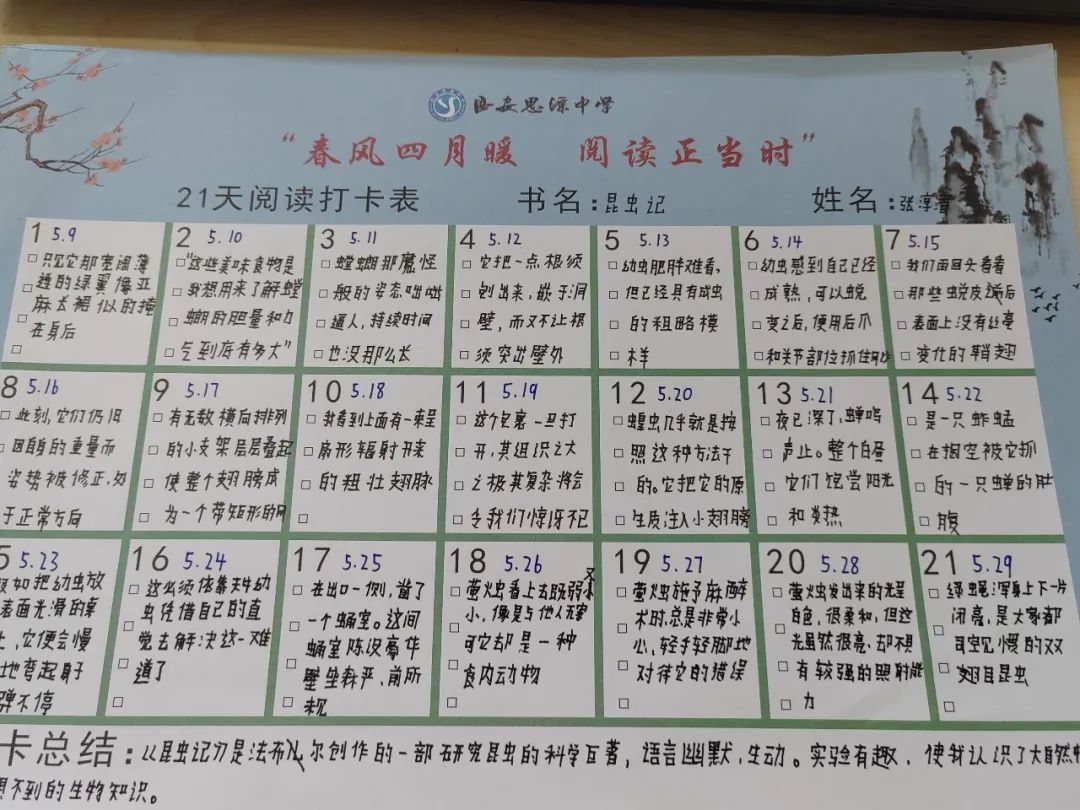 西安思源中学
“春风四月暖 阅读正当时”
21天阅读打卡表 书名:昆虫记 姓名:张淳
1 5.9
只见它那宽阔薄
透的绿翼像亚
麻长裙似的掩
在身后
2 5.10
“这些美味食物是
我想用来了解螳
螂的胆量和力
气到底有多大”
3 5.11
螳螂那魔怪
般的姿态咄咄
逼人,持续时间
也没那么长
4 5.12
它把一点根须
刨出来,嵌于洞
壁,而又不让根
须突出壁外
5 5.13
幼虫肥胖难看,
但已经具有成虫
的粗略模
样
6 5.14
幼虫感到自己已经
成熟,可以蜕
变之后,便用后爪
和关节部位抓住
7 5.15
我们再回头看看
那些蜕皮之后
表面上没有丝毫
变化的鞘翅
8 5.16
此刻,它们仍旧
因自身的重量而
姿势被修正,处
于正常方向
9 5.17
有无数横向排列
的小支架层层叠起
使整个翅膀成
为一个带矩形的网
10 5.18
我看到上面有一束呈
扇形辐射开来
的粗壮翅脉
11 5.19
这个包裹一旦打
开,其组织之大
之极其复杂将会
令我们惊讶不已
12 5.20
蝗虫几乎就是按
照这种方法干
的。它把它的原
生质注入小翅膀
13 5.21
夜已深了,蝉鸣
声止。整个白昼
它们饱尝阳光
和炎热
14 5.22
是一只蚱蜢
在掏空被它抓
的一只蝉的肚
腹
5 5.23
假如把幼虫放
表面光滑的桌
上,它便会慢
地弯起身子
弹不停
16 5.24
这必须依靠天牛幼
虫凭借自己的直
觉去解决这一难
道了
17 5.25
在出口一侧,凿了
一个蛹室。这间
蛹室陈设豪华
壁垒森严,前所
未观
18 5.26
萤火虫看上去既弱又
小,像是与他人无害
可它却是一种
食肉动物
19 5.27
萤火虫施予麻醉
术时,总是非常小
心,轻手轻脚地
对待它的猎误
20 5.28
萤火虫发出来的光呈
白色,很柔和,但这
光虽然很亮,却不具
有较强的照射能
力
21 5.29
绿蝇:浑身上下一片
闭亮,是大家都
司空见惯的双
翅目昆虫
卡总结:以昆虫记乃是法布儿尔创作的一部研究昆虫的科学巨著,语言幽默,生动。实验有趣,使我认识了大自然
想不到的生物知识。